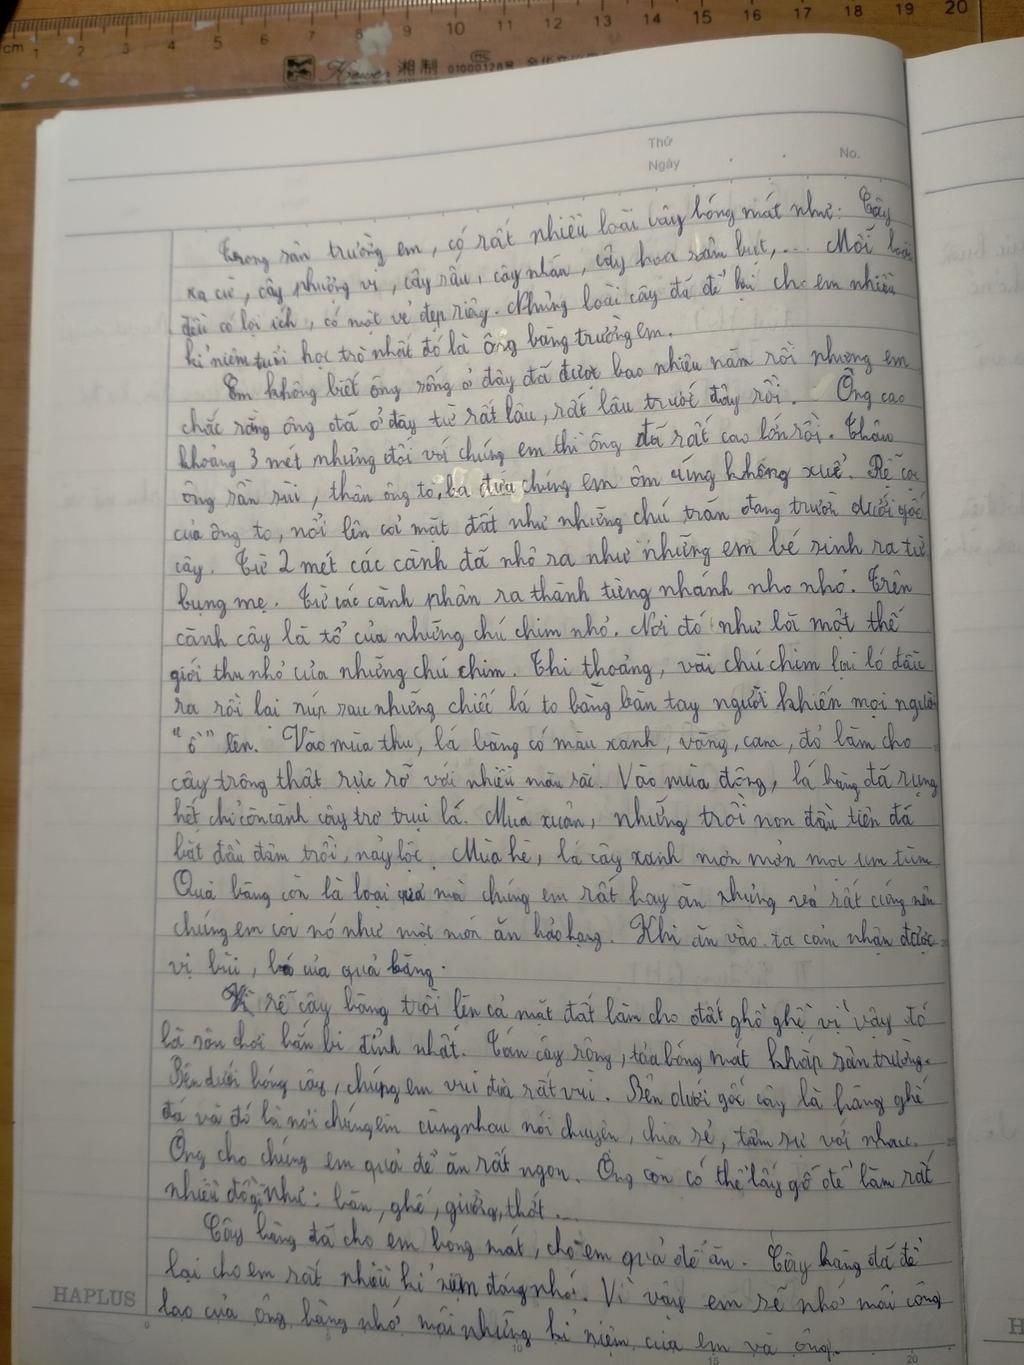 cm 1 2 3 4 5 6 7 8 9 10 11 12 13 14 15 16 17 18 19 20
湘制 01000128号
Thứ
Ngày
No.
Trong sân trường em, có rất nhiều loài cây bóng mát như: Cây
xà cừ, cây phượng vĩ, cây sấu, cây nhãn, cây hoa râm bụt,... Mỗi loài
đều có lợi ích, có một vẻ đẹp riêng. Nhưng loài cây đã để lại cho em nhiều
kỉ niệm tuổi học trò nhất đó là ông bàng trường em.
Em không biết ông sống ở đây đã được bao nhiêu năm rồi nhưng em
chắc rằng ông đã ở đây từ rất lâu, rất lâu trước đây rồi. Ông cao
khoảng 3 mét nhưng đối với chúng em thì ông đã rất cao lớn rồi. Thân
ông sần sùi, thân ông to, ba đứa chúng em ôm cũng không xuể. Rễ
của ông to, nổi lên cả mặt đất như những chú trăn đang trườn dưới gốc
cây. Từ 2 mét các cành đã nhô ra như những em bé sinh ra từ
bụng mẹ. Từ các cành phân ra thành từng nhánh nho nhỏ. Trên
cành cây là tổ của những chú chim nhỏ. Nơi đó như là một thế
giới thu nhỏ của những chú chim. Thi thoảng, vài chú chim lại ló đầu
ra rồi lại núp sau những chiếc lá to bằng bàn tay người khiến mọi người
"ồ" lên. Vào mùa thu, lá bàng có màu xanh, vàng, cam, đỏ làm cho
cây trông thật rực rỡ với nhiều màu sắc. Vào mùa đông, lá bàng đã rụng
hết chỉ còn cành cây trơ trụi lá. Mùa xuân, những trồi non đầu tiên đã
bắt đầu đâm trồi, nảy lộc. Mùa hè, lá cây xanh mơn mởn mọc um tùm.
Quả bàng còn là loại quả mà chúng em rất hay ăn nhưng nó rất cứng nên
chúng em coi nó như một món ăn hảo hạng. Khi ăn vào ta cảm nhận được
vị bùi, của quả bàng.
Vì rễ cây bàng trồi lên cả mặt đất làm cho đất ghồ ghề vì vậy đó
là sân chơi bắn bi đỉnh nhất. Tán cây rộng, tỏa bóng mát khắp sân trường.
Bên dưới bóng cây, chúng em vui đùa rất vui. Bên dưới gốc cây là hàng ghế
đá và đó là nơi chúng em cùng nhau nói chuyện, chia sẻ, tâm sự với nhau.
Ông cho chúng em quả để ăn rất ngon. Ông còn có thể lấy gỗ để làm rất
nhiều đồ gỗ như: bàn, ghế, giường, thớt...
Cây bàng đã cho em bóng mát, cho em quả để ăn. Cây bàng đã để
lại cho em rất nhiều kỉ niệm đáng nhớ. Vì vậy em sẽ nhớ mãi công
lao của ông bàng nhớ mãi những kỉ niệm của em và ông.
HAPLUS
10 15 20
H